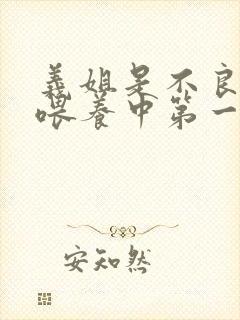 義姐是不良
喂养中第一
安知然